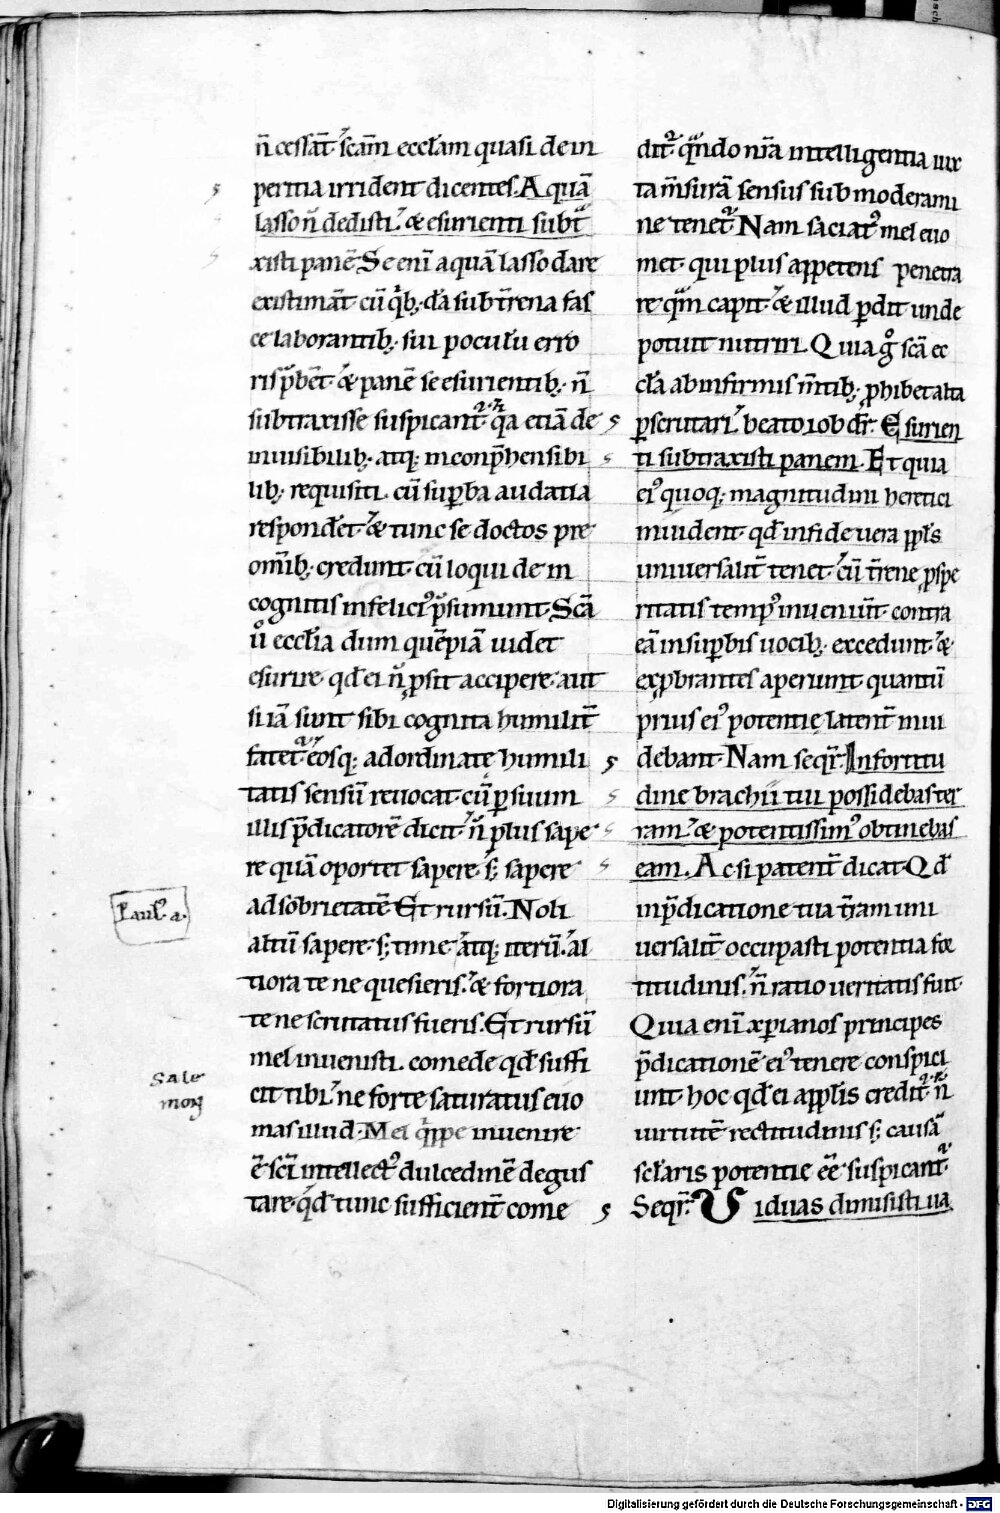 n̄ cessāt. scām eccl̄am quasi de in
pertia irrident dicentes. A quā
lasso n̄ dedisti. & esurienti subt
xisti panē. Se enī aquā lasso dare
existimāt cū q'b; dā sub t̄rena fas
ce laborantib; sui poculū erro
ris p̄bēt. & panē se esurientib; n̄
subtraxisse suspicant̄. qa etiā de
inuisibilib; atq; inconp̄hensibi
lib; requisiti. cū supba audatia
respondēt. & tunc se doctos pre
om̄ib; credunt. cū loqui de in
cognitis infelici' p̄sumunt. Scā
ů eccl̄ia dum quēpiā uidet
esurire. qd ei n̄ psit accipere. aut
si iā sunt sibi cognita humilit̄
fatet̄. eosq; ad ordinatę humili
tatis sensū reuocat. cū p suum
illis p̄dicatorē dicit. n̄ plus sape
re quā oportet sapere. s; sapere
ad sobrietatē. Et rursū. Noli
altū sapere. s; time. atq; iterū. al
tiora te ne quesieris. & fortiora
te ne scrutatus fueris. Et rursū
mel inuenisti. comede qd suffi
cit tibi. ne forte saturatus euo
mas illud. Mel q'ppe inuenire
ē. sc̄i intellect' dulcedinē degus
tare. qd tunc sufficient̄ come
Paul. a.
Sale
mon
dit̄. qndo nr̄a intelligentia iux
ta m̄surā sensus sub moderami
ne tenet̄. Nam saciat' mel euo
met. qui plus appetens penetra
re qm capit. & illud pdit unde
potuit nutriri. Quia g° scā ec
cl̄a ab infirmis m̄tib; phibet alta
pscrutari. beato iob dr̄. Esurien
ti subtraxisti panem. Et quia
ei' quoq; magnitudini heretici
inuident. qd in fide uera ppl̄s
uniuersalit̄ tenet. cū t̄rene pspe
ritatis temp' inueniūt. contra
eā in supbis uocib; excedunt. &
expbrantes aperiunt quantū
prius ei' potentię latent̄ inui
debant. Nam seqr̄. In fortitu
dine brachii tui possidebas ter
ram. & potentissim' obtinebas
eam. Ac si patent̄ dicat. Qd
in p̄dicatione tua t̄ram uni
uersalit̄ occupasti potentia for
titudinis. n̄ ratio ueritatis fuit.
Quia enī xpianos principes
p̄dicationē ei' tenere conspici
unt. hoc qd ei a ppl̄is credit̄. n̄
uirtutē rectitudinis s; causā
sc̄laris potentie eē suspicant̄.
Seqr̄. Uiduas dimisisti ua
Digitalisierung gefördert durch die Deutsche Forschungsgemeinschaft - DFG